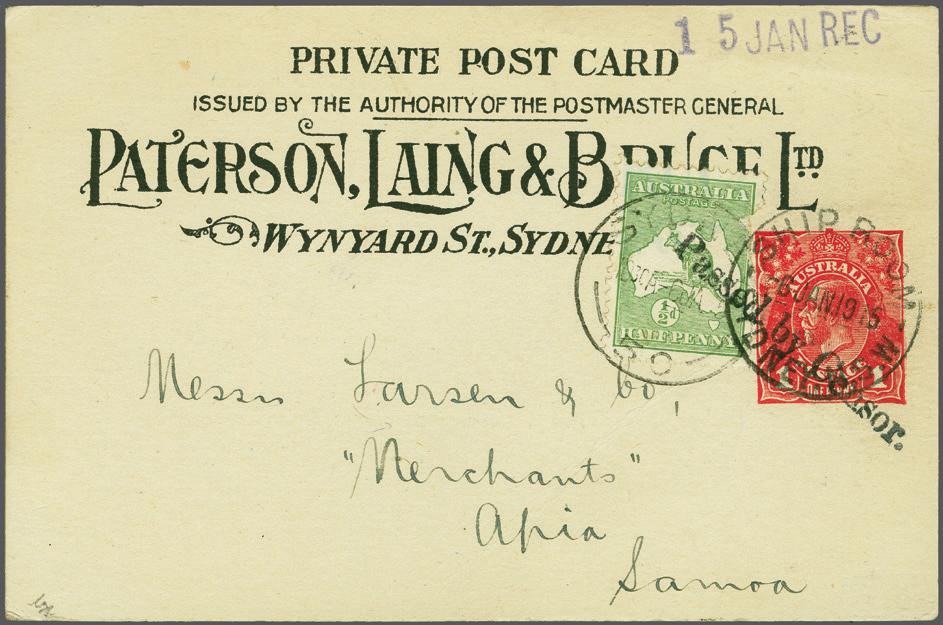 1 5 JAN REC
PRIVATE POST CARD
ISSUED BY THE AUTHORITY OF THE POSTMASTER GENERAL
PATERSON, LAING & BRUCE LTD
WYNYARD ST., SYDNE
AUSTRALIA
POSTAGE
½d
HALFPENNY
SHIP ROOM
SYDNEY
AUSTRALIA
Passed by Censor.
Messrs Larsen & Co,
"Merchants"
Apia
Samoa